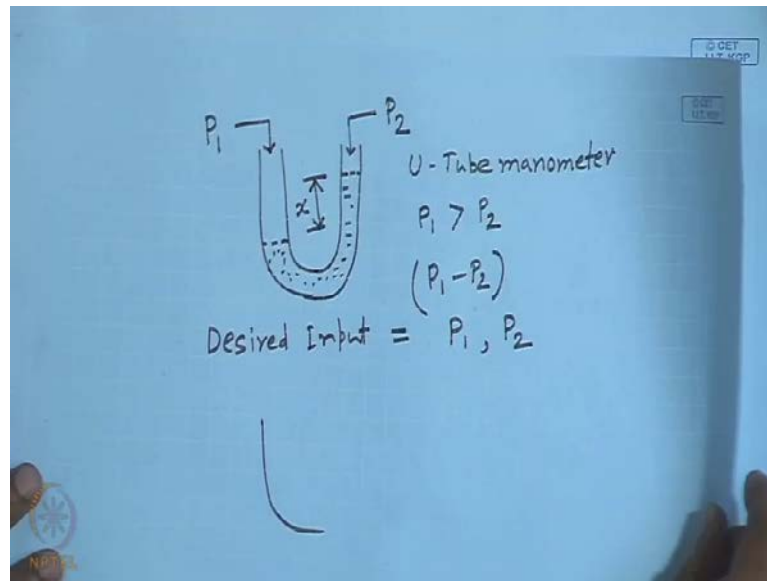 © CET
I.I.T. KGP
P₁
P₂
x
U-Tube manometer
P₁ > P₂
(P₁ - P₂)
Desired Input = P₁, P₂
NPTEL